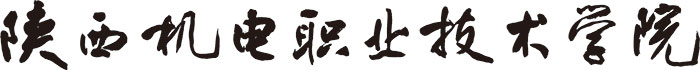 陕西机电职业技术学院